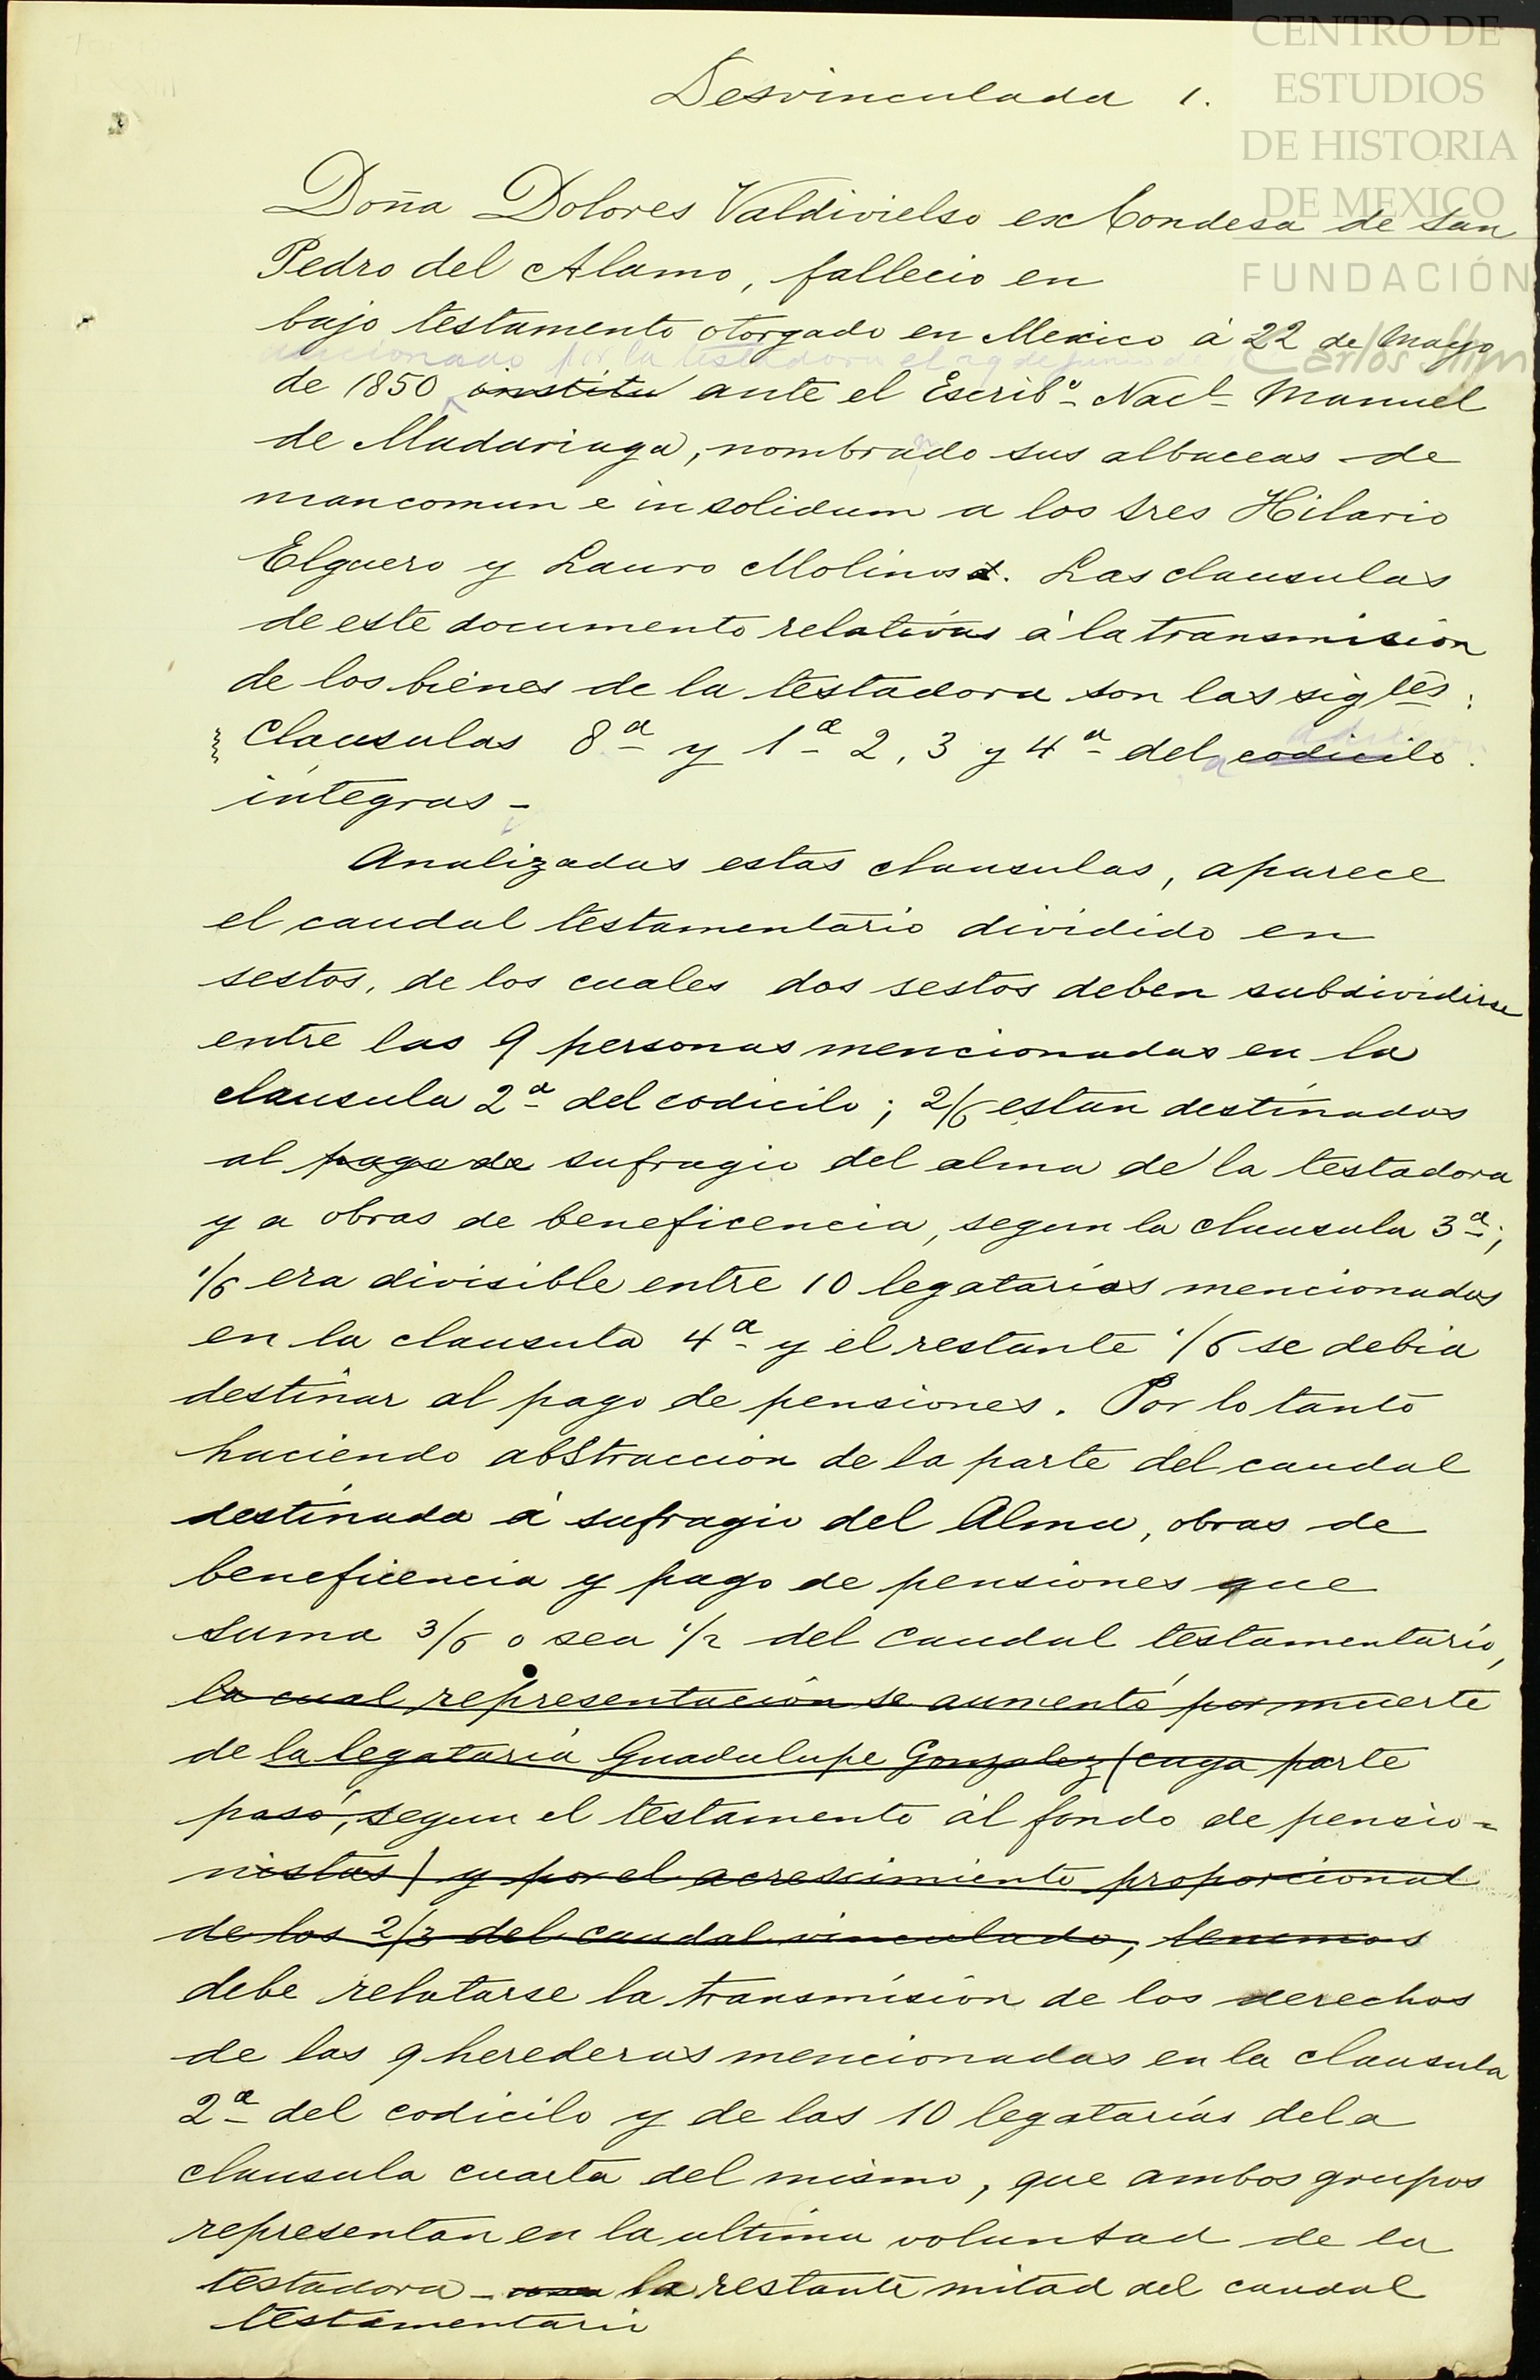 CENTRO DE
ESTUDIOS
DE HISTORIA
DE MEXICO
FUNDACIÓN
Carlos Slim
Desvinculada 1.
Doña Dolores Valdivielso ex Condesa de San
Pedro del Alamo, fallecio en
bajo testamento otorgado en Mexico á 22 de Mayo
adicionado por la testadora el 29 de junio de
de 1850 institu ante el Escribº Nacl Manuel
de Madariaga, nombrado sus albaceas de
mancomun e insolidum a los Sres Hilario
Elguero y Lauro Molinos. Las clausulas
de este documento relativas á la transmision
de los bienes de la testadora son las sigtes:
Clausulas 8ª y 1ª 2, 3 y 4ª del codicilo.
integras -
Analizadas estas clausulas, aparece
el caudal testamentario dividido en
sestos, de los cuales dos sestos deben subdividirse
entre las 9 personas mencionadas en la
clausula 2ª del codicilo; 2/6 estan destinados
al pago de sufragio del alma de la testadora
y a obras de beneficencia, segun la clausula 3ª;
1/6 era divisible entre 10 legatarias mencionadas
en la clausula 4ª y el restante 1/6 se debia
destinar al pago de pensiones. Por lo tanto
haciendo abstraccion de la parte del caudal
destinada á sufragio del Alma, obras de
beneficencia y pago de pensiones que
suma 3/6 o sea 1/2 del caudal testamentario,
la cual representación se aumentó por muerte
de la legataria Guadalupe Gonzalez (cuya parte
pasó, segun el testamento al fondo de pensio-
nistas) y por el acrescimiento proporcional
de los 2/3 del caudal vinculado, tenemos
debe relatarse la transmision de los derechos
de las 9 herederas mencionadas en la clausula
2ª del codicilo y de las 10 legatarias de la
clausula cuarta del mismo, que ambos grupos
representan en la ultima voluntad de la
testadora - la restante mitad del caudal
testamentario